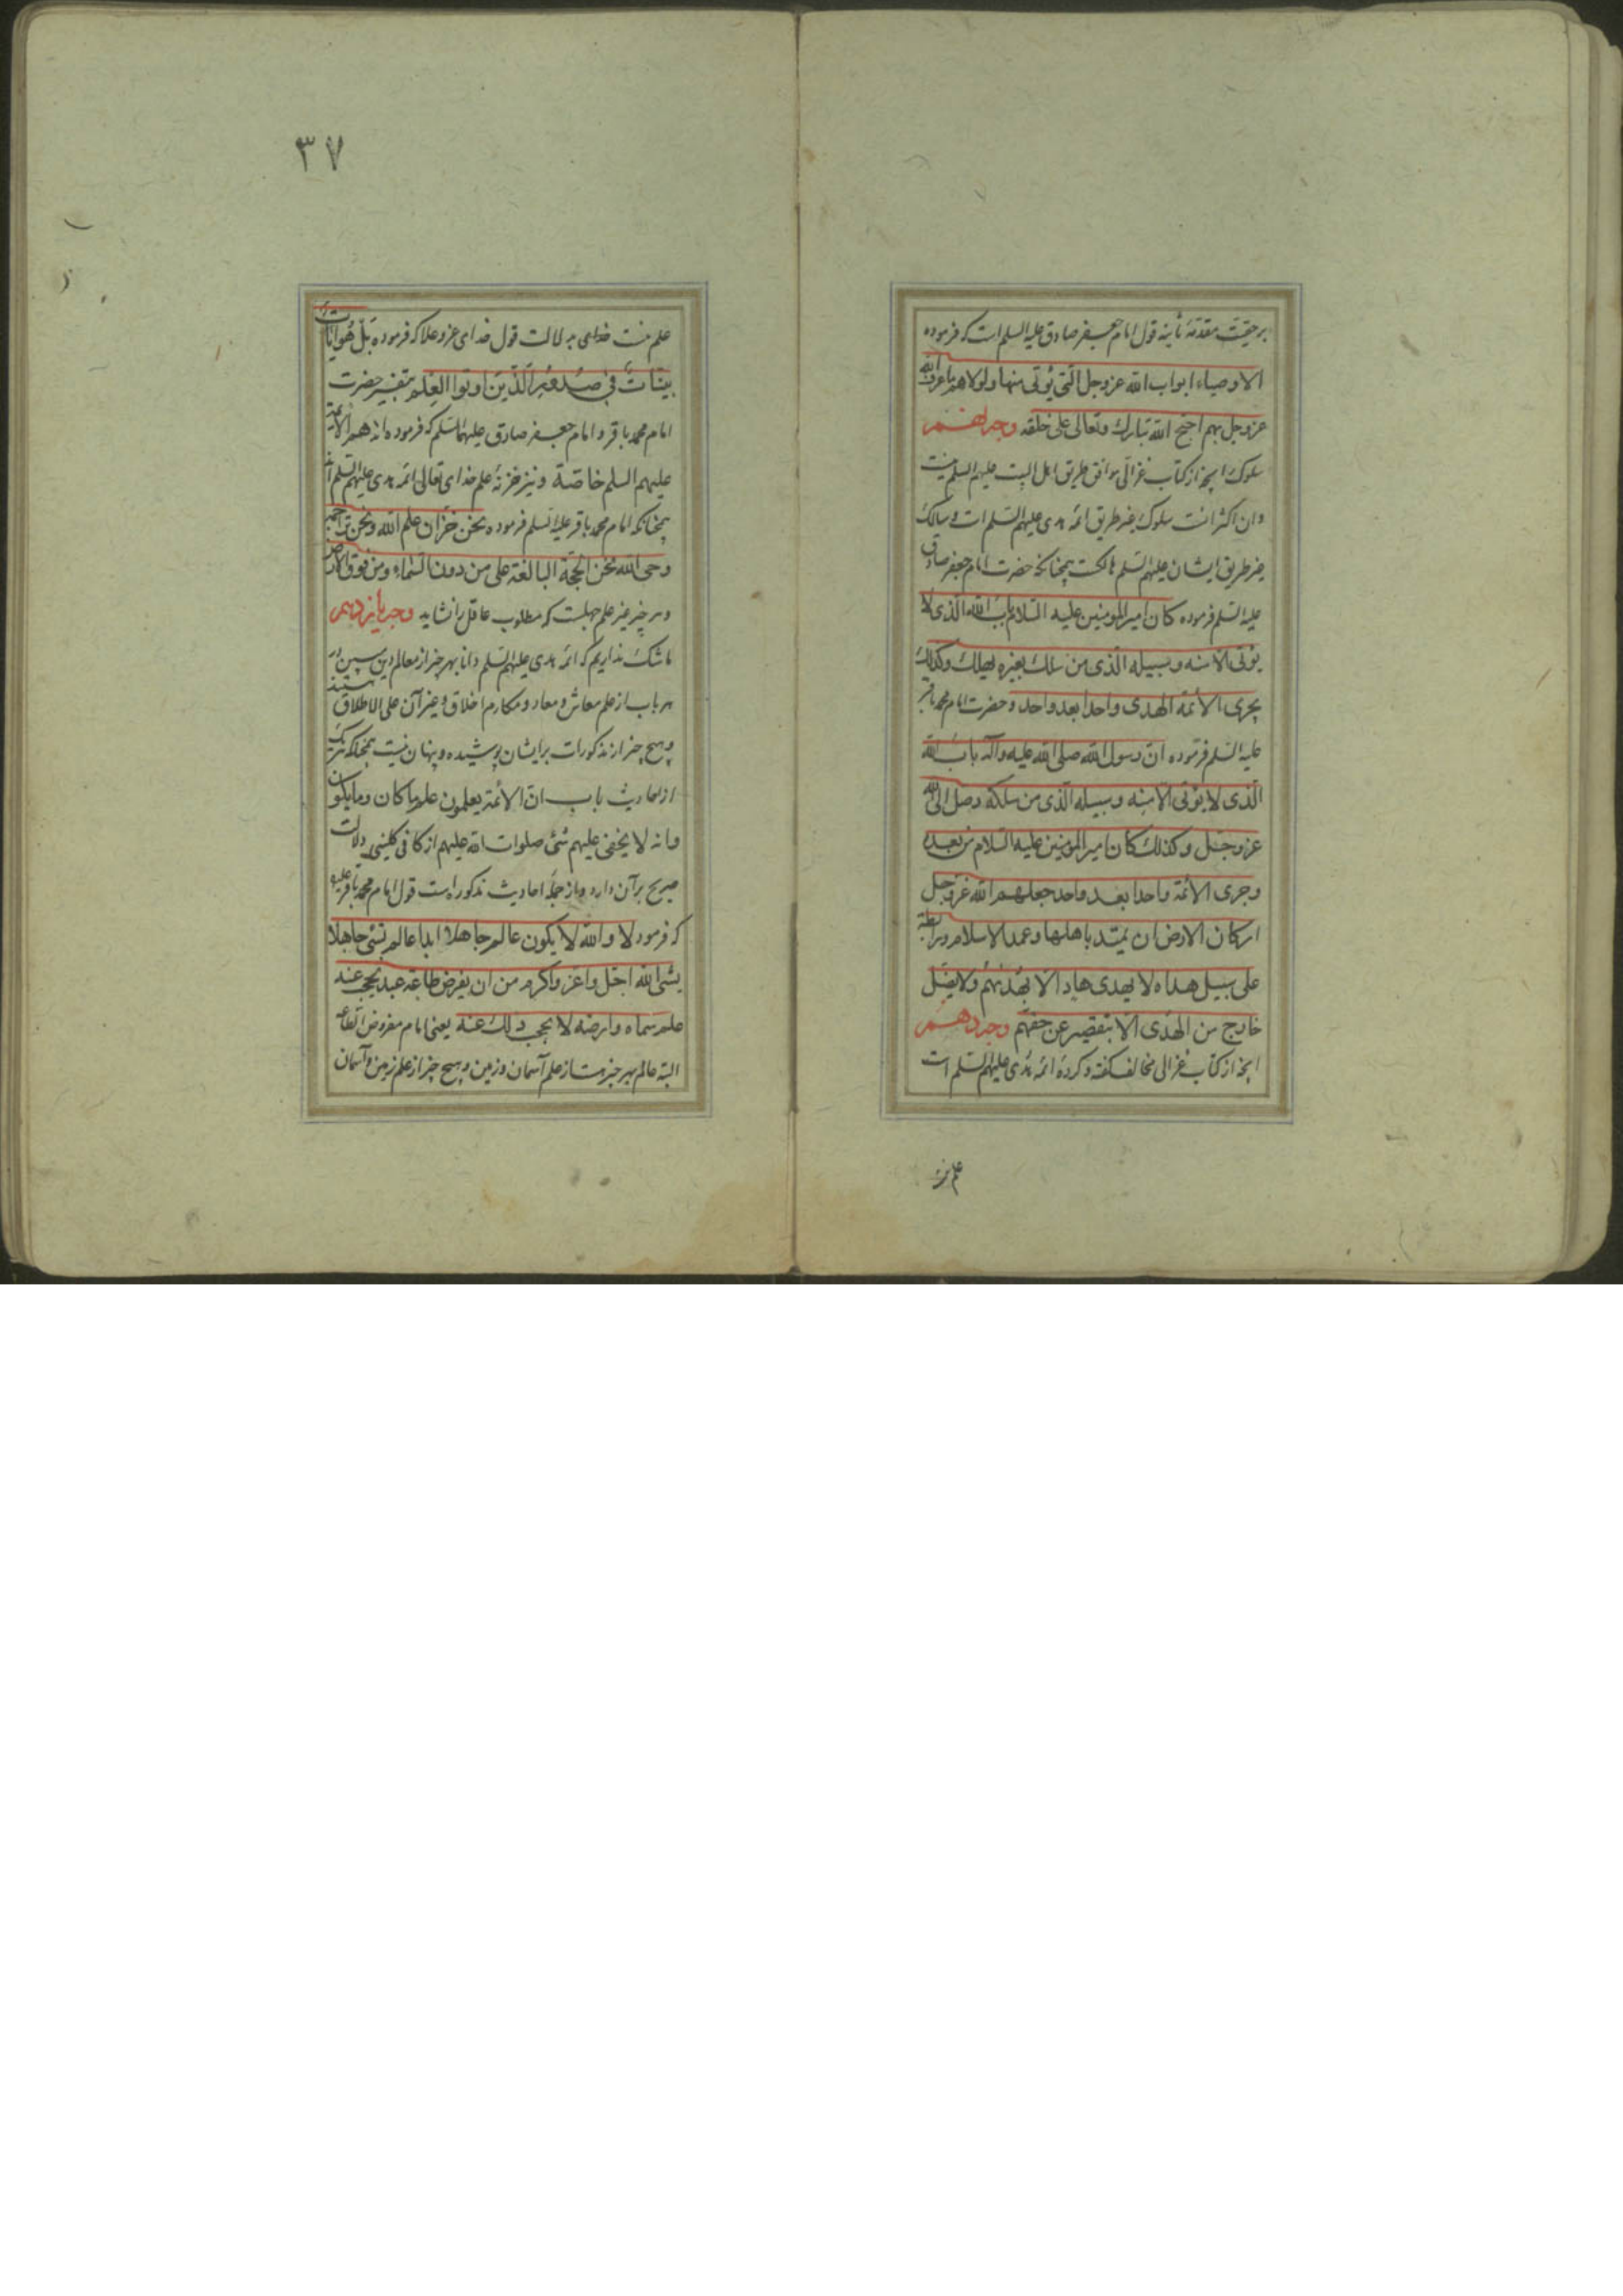 بر حقیقت مقدمهٔ ثانیه قول امام جعفر صادق علیه السلم است که فرموده
الاوصیاء ابواب الله عز وجل الّتی یُؤتی منها و لولاهم ما عرف الله
عز وجل بهم احتج الله تبارك وتعالی علی خلقه وجه نهم
سلوک را آنچه از کتاب غزالی موافق طریق اهل البیت علیهم السلم نیست
و ان اکثر انست سلوک بغیر طریق ائمه هدی علیهم السلم است و سالک
غیر طریق ایشان علیهم السلم هالکست چنانکه حضرت امام جعفر صادق
علیه السلم فرموده کان امیر المومنین علیه السلام باب الله الذی لا
یؤتی الا منه و سبیله الذی من سلك بغیره یهلك وکذلك
یجری الائمة الهدی واحدا بعد واحد و حضرت امام محمد باقر
علیه السلم فرموده انّ رسول الله صلی الله علیه وآله باب الله
الّذی لا یؤتی الا منه و سبیله الّذی من سلکه وصل الی الله
عز وجل وکذلك کان امیر المومنین علیه السلام من بعده
وجری الائمة واحدا بعد واحد جعلهم الله عز وجل
ارکان الارض ان تمید باهلها وعمد الاسلام ورابطة
علی سبیل هداه لا یهدی هاد الا بهُدیهُم ولا یضلّ
خارج من الهُدی الا بتقصیر عن حقهم وجه دهم
آنچه از کتاب غزالی مخالف گفته و کردهٔ ائمه هدی علیهم السلم است
علم نیست
۳۷
علم نیست خدای به دلالت قول خدای عز و علا که فرموده بَلْ هُوَ آیَاتٌ
بیّناتٌ فی صُدُورِ الَّذینَ اوتوا العِلم بتفسیر حضرت
امام محمد باقر و امام جعفر صادق علیهما السلم که فرموده اند هم الائمة
علیهم السلم خاصة و نیز خزنهٔ علم خدای تعالی ائمه هدی علیهم السلم اند
چنانکه امام محمد باقر علیه السلم فرموده نحن خزّان علم الله ونحن تراجمة
وحی الله نحن الحجّة البالغة علی من دون السماء ومن فوق الارض
و هر چیز غیر علم جهلست که مطلوب عاقل را نشاید وجه یازدهم
ما شک نداریم که ائمه هدی علیهم السلم دانا بهر چیز از معالم دین مبین در
هر باب از علم معاش و معاد و مکارم اخلاق و غیر آن علی الاطلاق هستند
و هیچ چیز از مذکورات بر ایشان پوشیده و پنهان نیست چنانکه هر یک
از احادیث باب انّ الائمة یعلمون علم ما کان وما یکون
وانه لا یخفی علیهم شئ صلوات الله علیهم از کافی کلینی دلالت
صریح بر آن دارد و از جملهٔ احادیث مذکوره است قول امام محمد باقر علیه
که فرمود لا والله لا یکون عالم جاهلا ابدا عالم بشئ جاهلا
بشئ الله اجل واعز واکرم من ان یفرض طاعة عبد یحجب عنه
علم سمائه وارضه لا یحجب ذلك عنه یعنی امام مفروض الطاعه
البته عالم بهر چیز هست از علم آسمان و زمین و هیچ چیز از علم زمین و آسمان